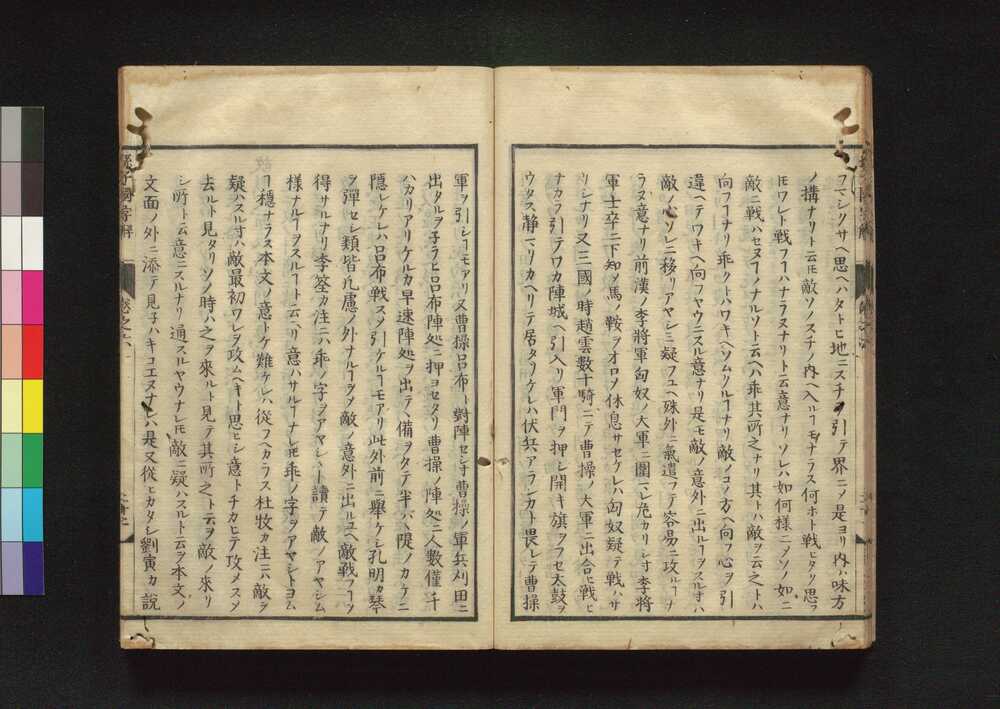 フマシクサヘ思ヘハタトヒ地ニスチヲ引テ界ニメ是ヨリ内ハ味方
ノ搆ナリト云𪜈敵ソノスチノ内ヘ入ルヿモナラス何ホト戦ヒタク思フ
𪜈ワレト戦フヿハナラヌナリト云意ナリソレハ如何様ニソノ如ニ
敵ニ戦ハセヌヿナルソト云ヘハ乖其所之ナリ其トハ敵ヲ云之トハ
向フヿナリ乖クトハワキヘソムクルヿナリ敵ノコノ方ヘ向フ心ヲ引
違ヘテワキヘ向フヤウニスル意ナリ是モ敵ノ意外ニ出ルヿヲスル寸ハ
敵ノ心ソレニ移リアヤシミ疑フユヘ殊外ニ氣遣フテ容易ニ攻ルヿナ
ラヌ意ナリ前漢ノ李將軍匈奴ノ大軍ニ圍マレ危カリシ寸李將
軍士卒ニ下知メ馬ノ鞍ヲオロシ休息サセケレハ匈奴疑テ戦ハサ
リシナリ又三國ノ時趙雲數十騎ニテ曹操ノ大軍ニ出合ヒ戦ヒ
ナカラ引テワカ陣城ヘ引入リ軍門ヲ押シ開キ旗ヲフセ太鼓ヲ
ウタス静マリカヘリテ居タリケレハ伏兵アランカト畏レテ曹操
軍ヲ引シヿモアリ又曹操呂布ト對陣セシ寸曹操ノ軍兵刈田ニ
出タルヲ子ラヒ呂布陣処ニ押ヨセタリ曹操ノ陣処ニ人數僅ニ千
ハカリアリケルカ早速陣処ヲ出テヽ備ヲタテ半バヽ隄ノカケニ
隠レケレハ呂布戦スメ引ケルヿモアリ此外前ニ擧ケシ孔明カ琴
ヲ彈セシ類皆凡慮ノ外ナルヿヲメ敵ノ意外ニ出ルユヘ敵戦フヿヲ
得サルナリ李筌カ注ニハ乖ノ字ヲアヤシムト讀テ敵ノアヤシム
様ナルヿヲスルヿト云ヘリ意ハサルヿナレ𪜈乖ノ字ヲアヤシトヨム
ヿ穩ナラス本文ノ意トケ難ケレハ從フヘカラス杜牧カ注ニハ敵ヲ
疑ハスル寸ハ敵最初ワレヲ攻ムヘキト思ヒシ意トチカヒテ攻メスメ
去ルト見タリソノ時ハ之ヲ來ルト見テ其所之ト云ヲ敵ノ來リ
シ所ト云意ニスルナリ通スルヤウナレ𪜈敵ニ疑ハスルト云ヲ本文ノ
文面ノ外ニ添テ見子ハキコエヌナレハ是又從ヒカタシ劉寅カ説